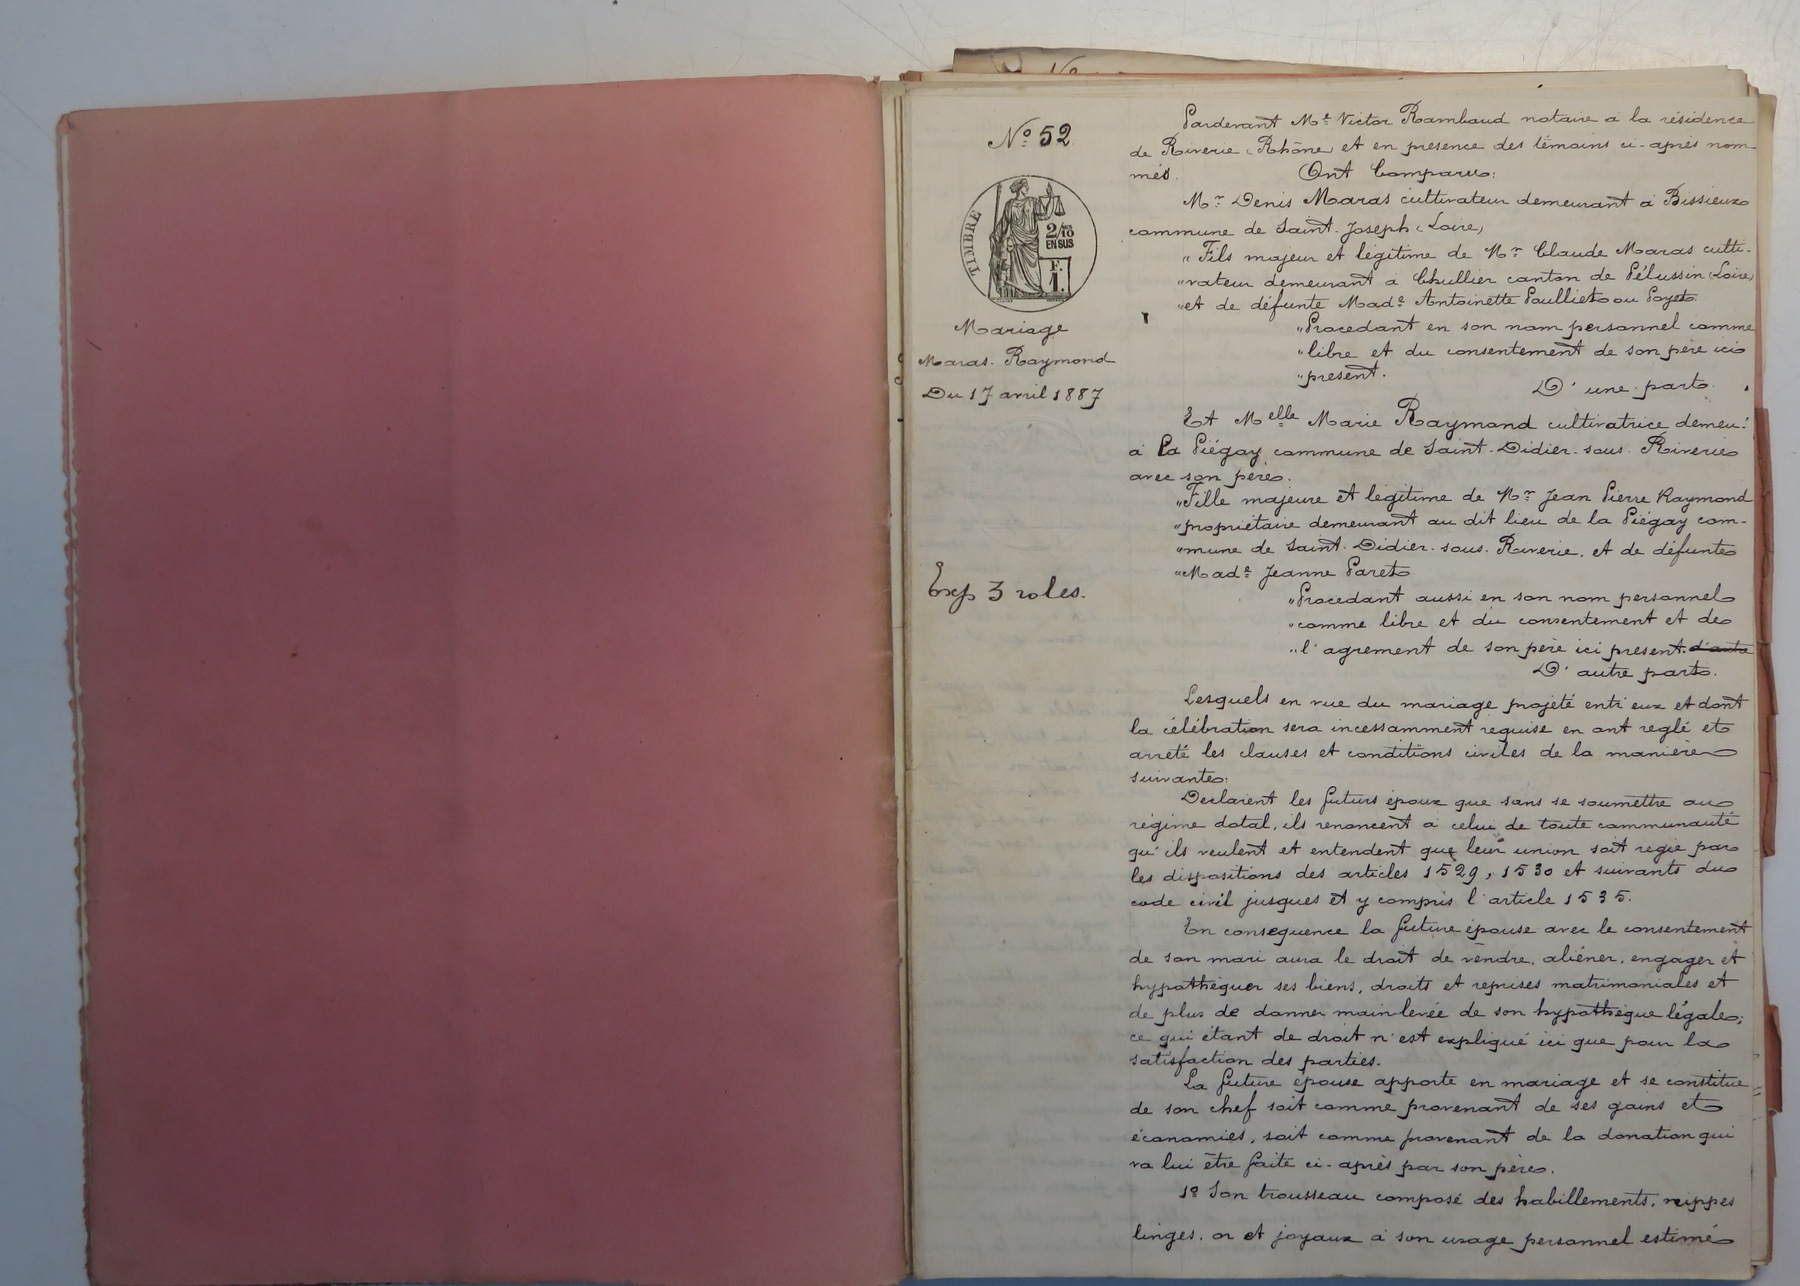 N° 52
TIMBRE
2/10
EN SUS
F.
1.
Mariage
Maras. Raymond
Du 17 avril 1887
Exp 3 roles.
Pardevant Me Victor Rambaud notaire à la résidence
de Riverie (Rhône) et en présence des témoins ci-après nom-
més. Ont Comparu:
Mr Denis Maras cultivateur demeurant à Bissieux
commune de Saint-Joseph (Loire)
" Fils majeur et légitime de Mr Claude Maras culti-
" vateur demeurant à Chullier canton de Pélussin (Loire)
" et de défunte Made Antoinette Paulliet ou Poyet
" Procedant en son nom personnel comme
" libre et du consentement de son père ici
" présent.
D'une part.
Et Melle Marie Raymond cultivatrice demeu.t
à La Piégay commune de Saint-Didier-sous-Riverie
avec son père.
" Fille majeure et légitime de Mr Jean Pierre Raymond
" propriétaire demeurant au dit lieu de la Piégay com-
" mune de Saint-Didier-sous-Riverie, et de défunte
" Made Jeanne Paret
" Procedant aussi en son nom personnel
" comme libre et du consentement et de
" l'agrement de son père ici présent. d'autre
D'autre part.
Lesquels en vue du mariage projeté entr'eux et dont
la célébration sera incessamment requise en ont reglé et
arreté les clauses et conditions civiles de la manière
suivante:
Declarent les futurs époux que sans se soumettre au
régime dotal, ils renoncent à celui de toute communauté
qu'ils veulent et entendent que leur union soit regie par
les dispositions des articles 1529, 1530 et suivants du
code civil jusques et y compris l'article 1535.
En consequence la future épouse avec le consentement
de son mari aura le droit de vendre, aliéner, engager et
hypothéquer ses biens, droits et reprises matrimoniales et
de plus de donner main-levée de son hypothèque légale;
ce qui étant de droit n'est expliqué ici que pour la
satisfaction des parties.
La future épouse apporte en mariage et se constitue
de son chef soit comme provenant de ses gains et
économies, soit comme provenant de la donation qui
va lui être faite ci-après par son père.
1° Son trousseau composé des habillements, nippes
linges, or et joyaux à son usage personnel estimé